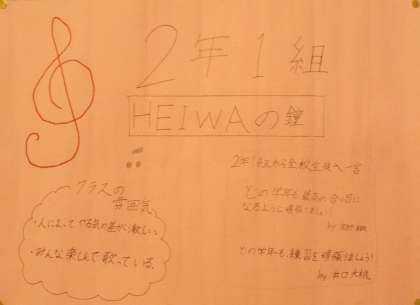 2年1組
HEIWAの鐘
クラスの
雰囲気
・人によってやる気の差が激しい。
・みんな楽しんで歌っている。
2年1組から全校生徒へ一言
どの学年も最高の合唱に
なるように頑張ましょう!
by
どの学年も、練習を頑張りましょう!
by 井口大